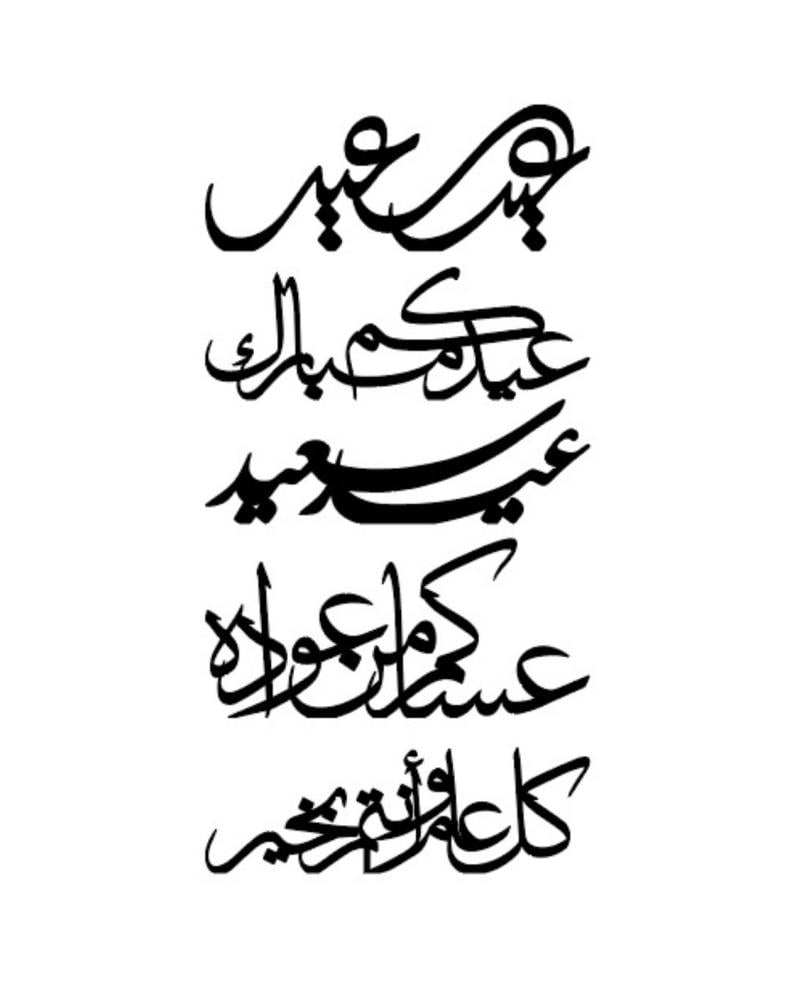 عيد سعيد
عيدكم مبارك
عيد سعيد
عساكم من عواده
كل عام وأنتم بخير